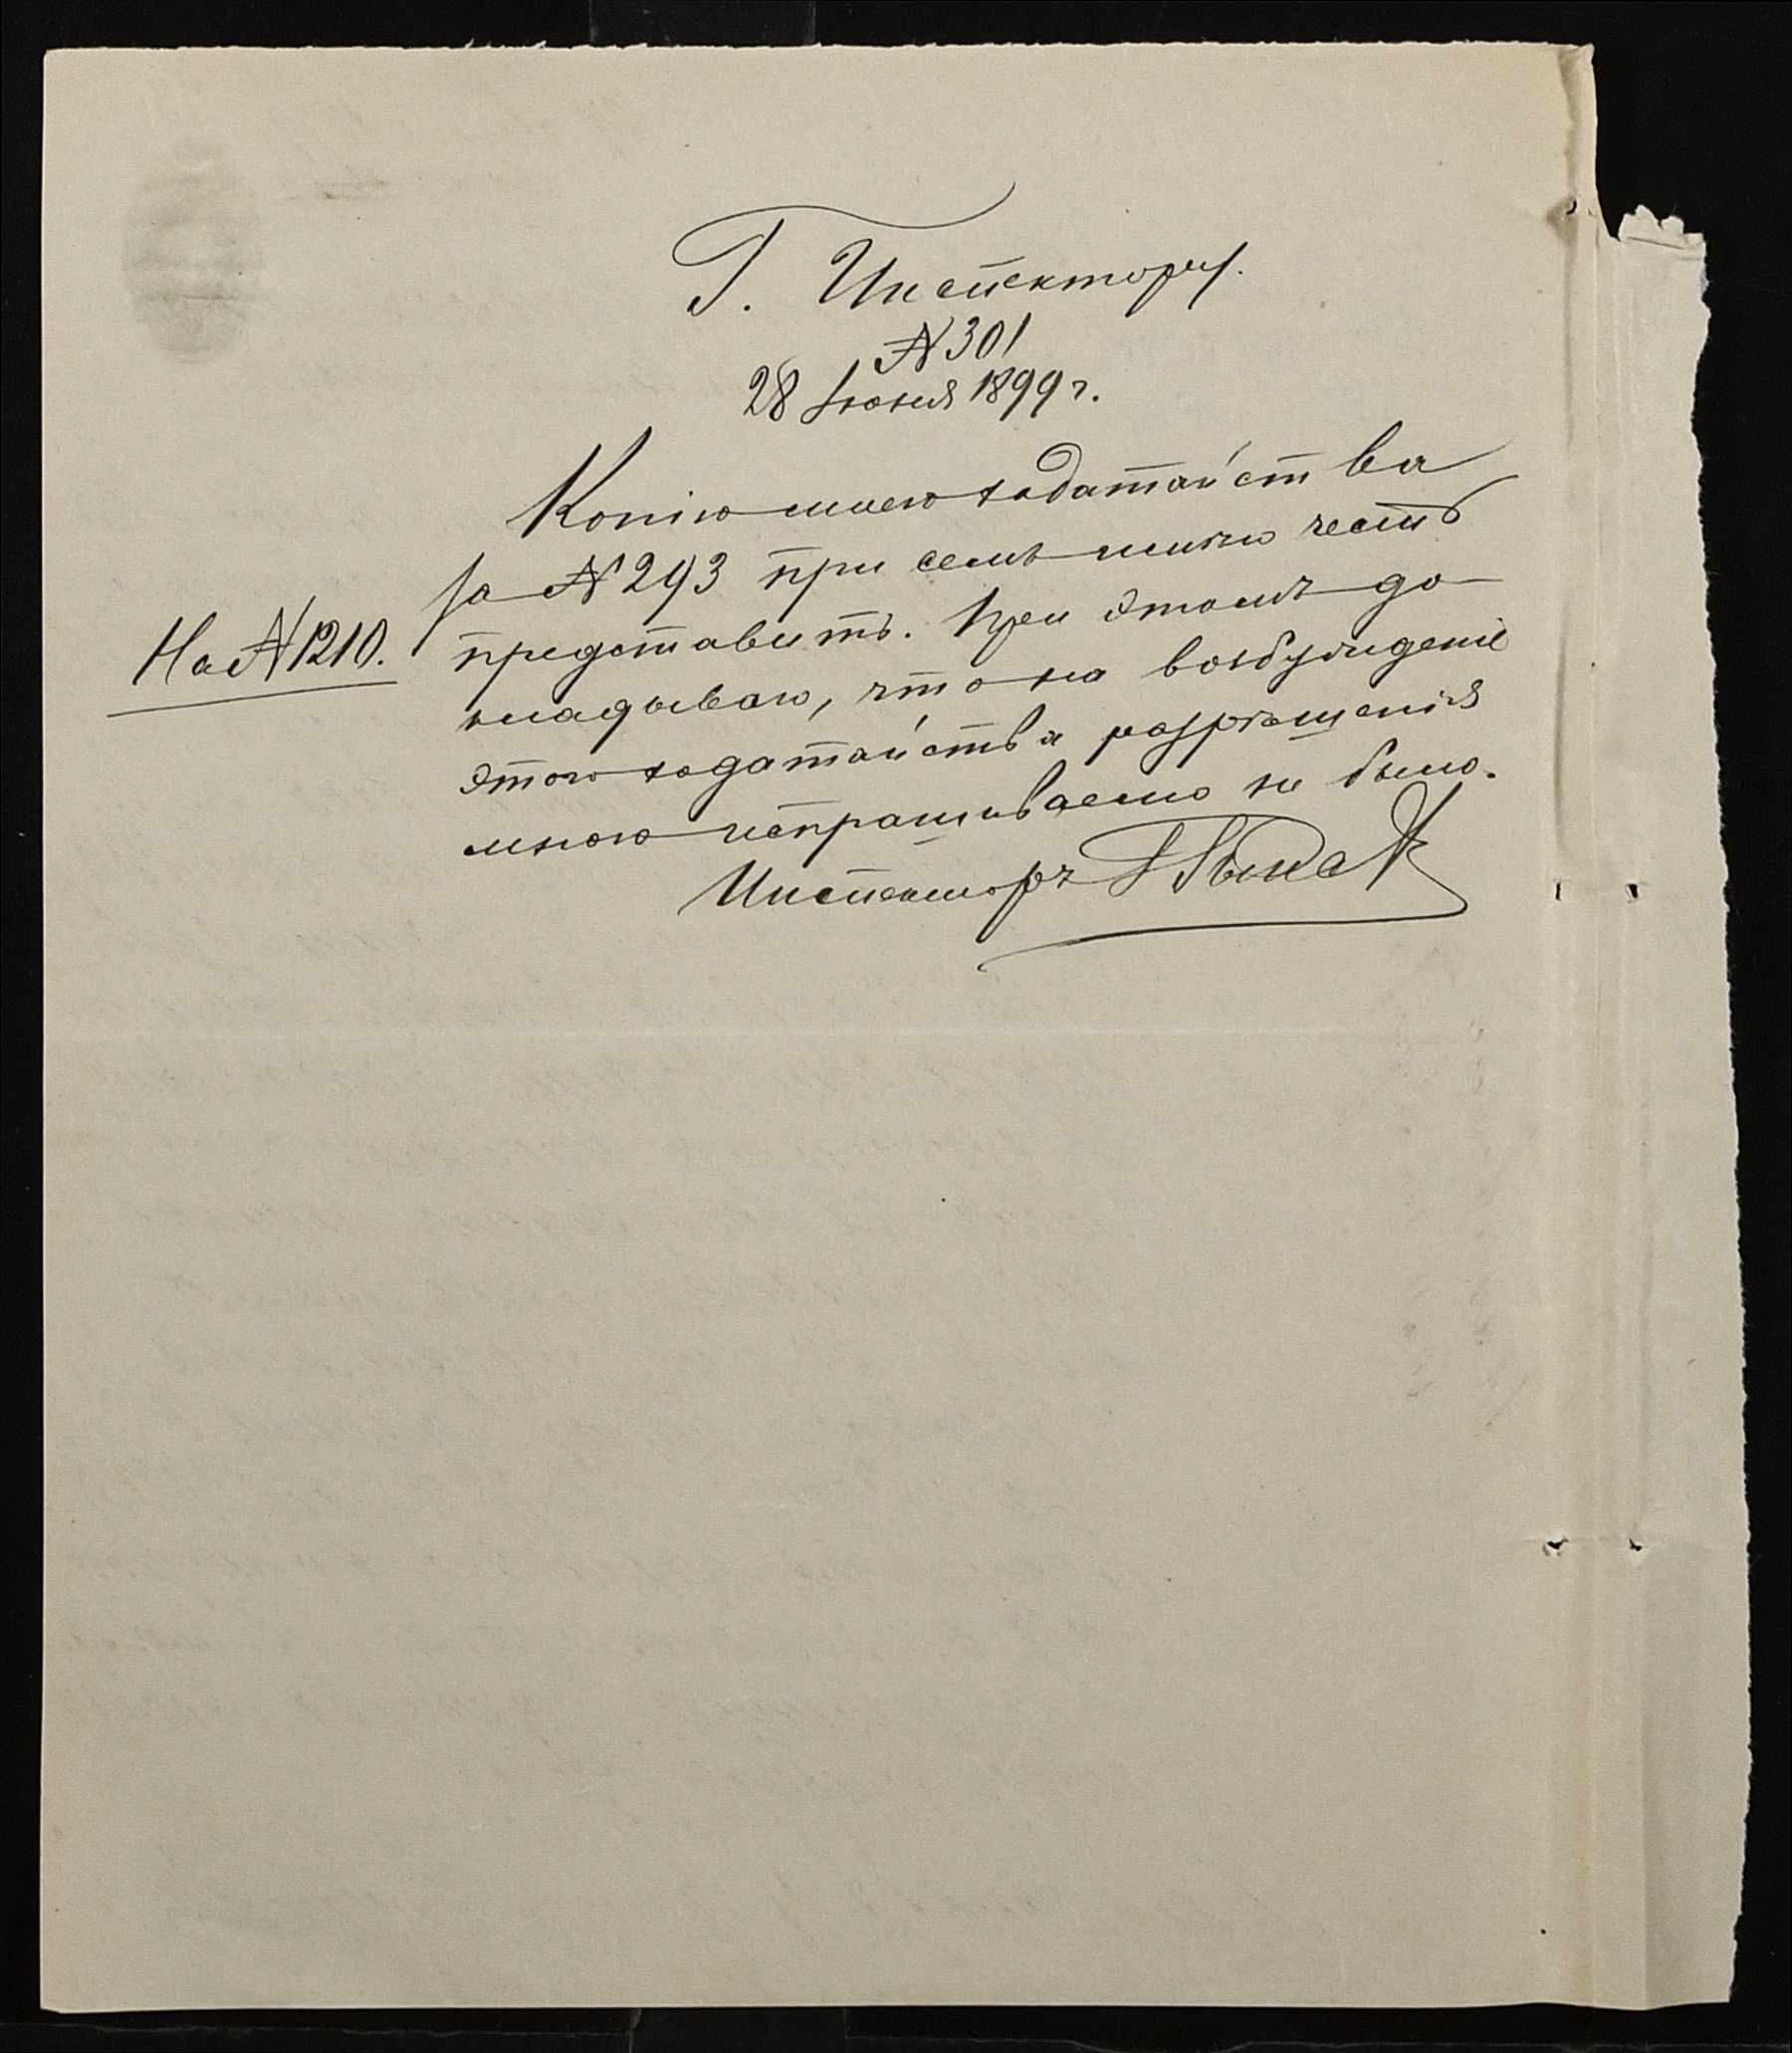 Г. Инспектору.
№ 301
28 Іюня 1899 г.
Копію моего ходатайства
за № 293 при семъ имѣю честь
На № 1210.
представить. При этомъ до-
кладываю, что на возбужденіе
этого ходатайства разрѣшенія
мною испрашиваемо не было.
Инспекторъ